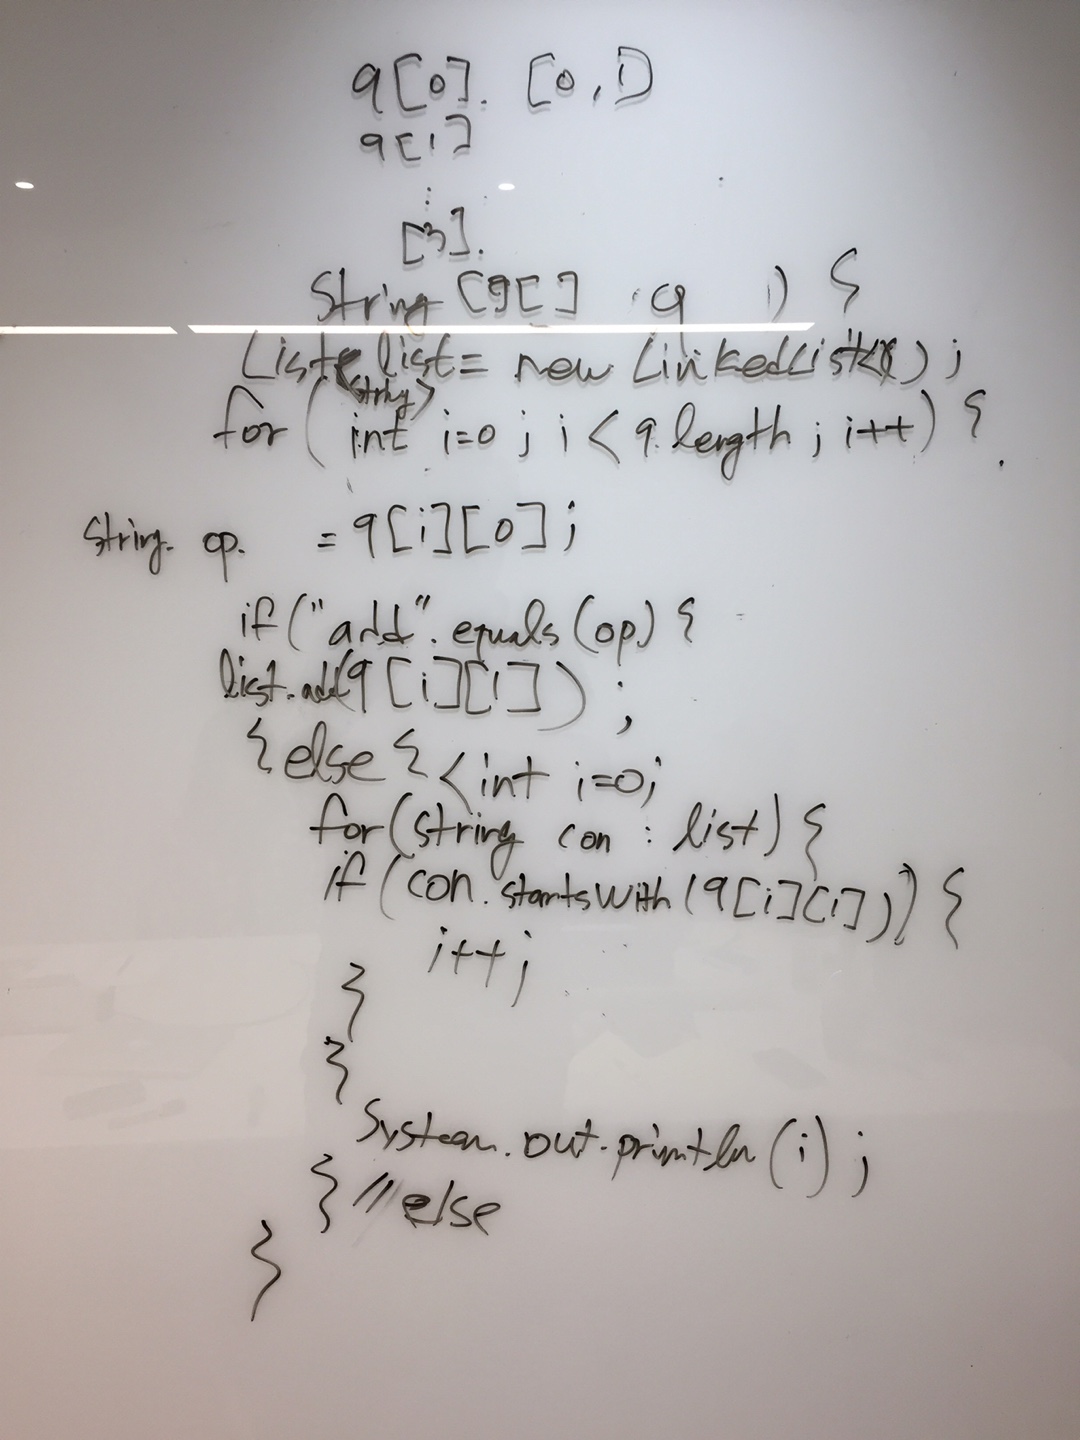 q[0]. [0,1)
q[1]
⋮
[3].
String [][] q ) {
List list = new LinkedList<>();
<String>
for (int i=0; i < q.length; i++) {
String op. = q[i][0];
if ("add".equals(op) {
list.add(q[i][1]);
}else{ < int i=0;
for(string con : list) {
if (con.startsWith(q[i][1])) {
i++;
}
}
System.out.println(i);
} //else
}